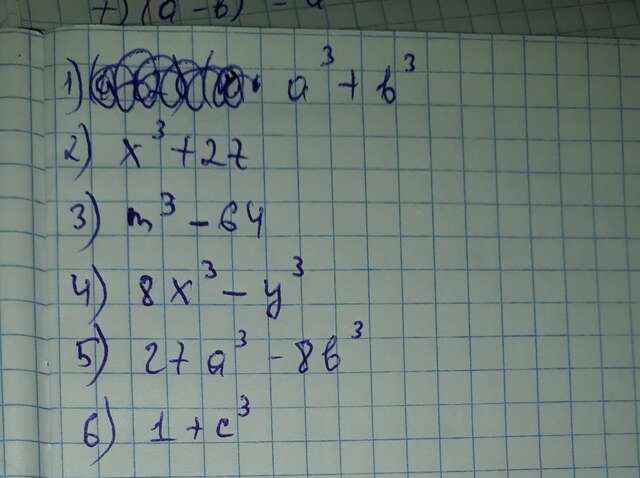 7) (a-b)
1) a³ + b³
2) x³ + 27
3) m³ - 64
4) 8x³ - y³
5) 27a³ - 8b³
6) 1 + c³